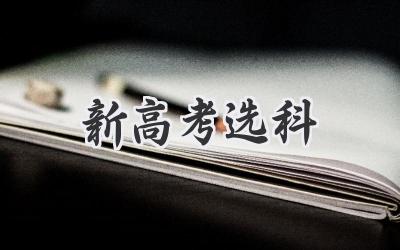 新高考选科